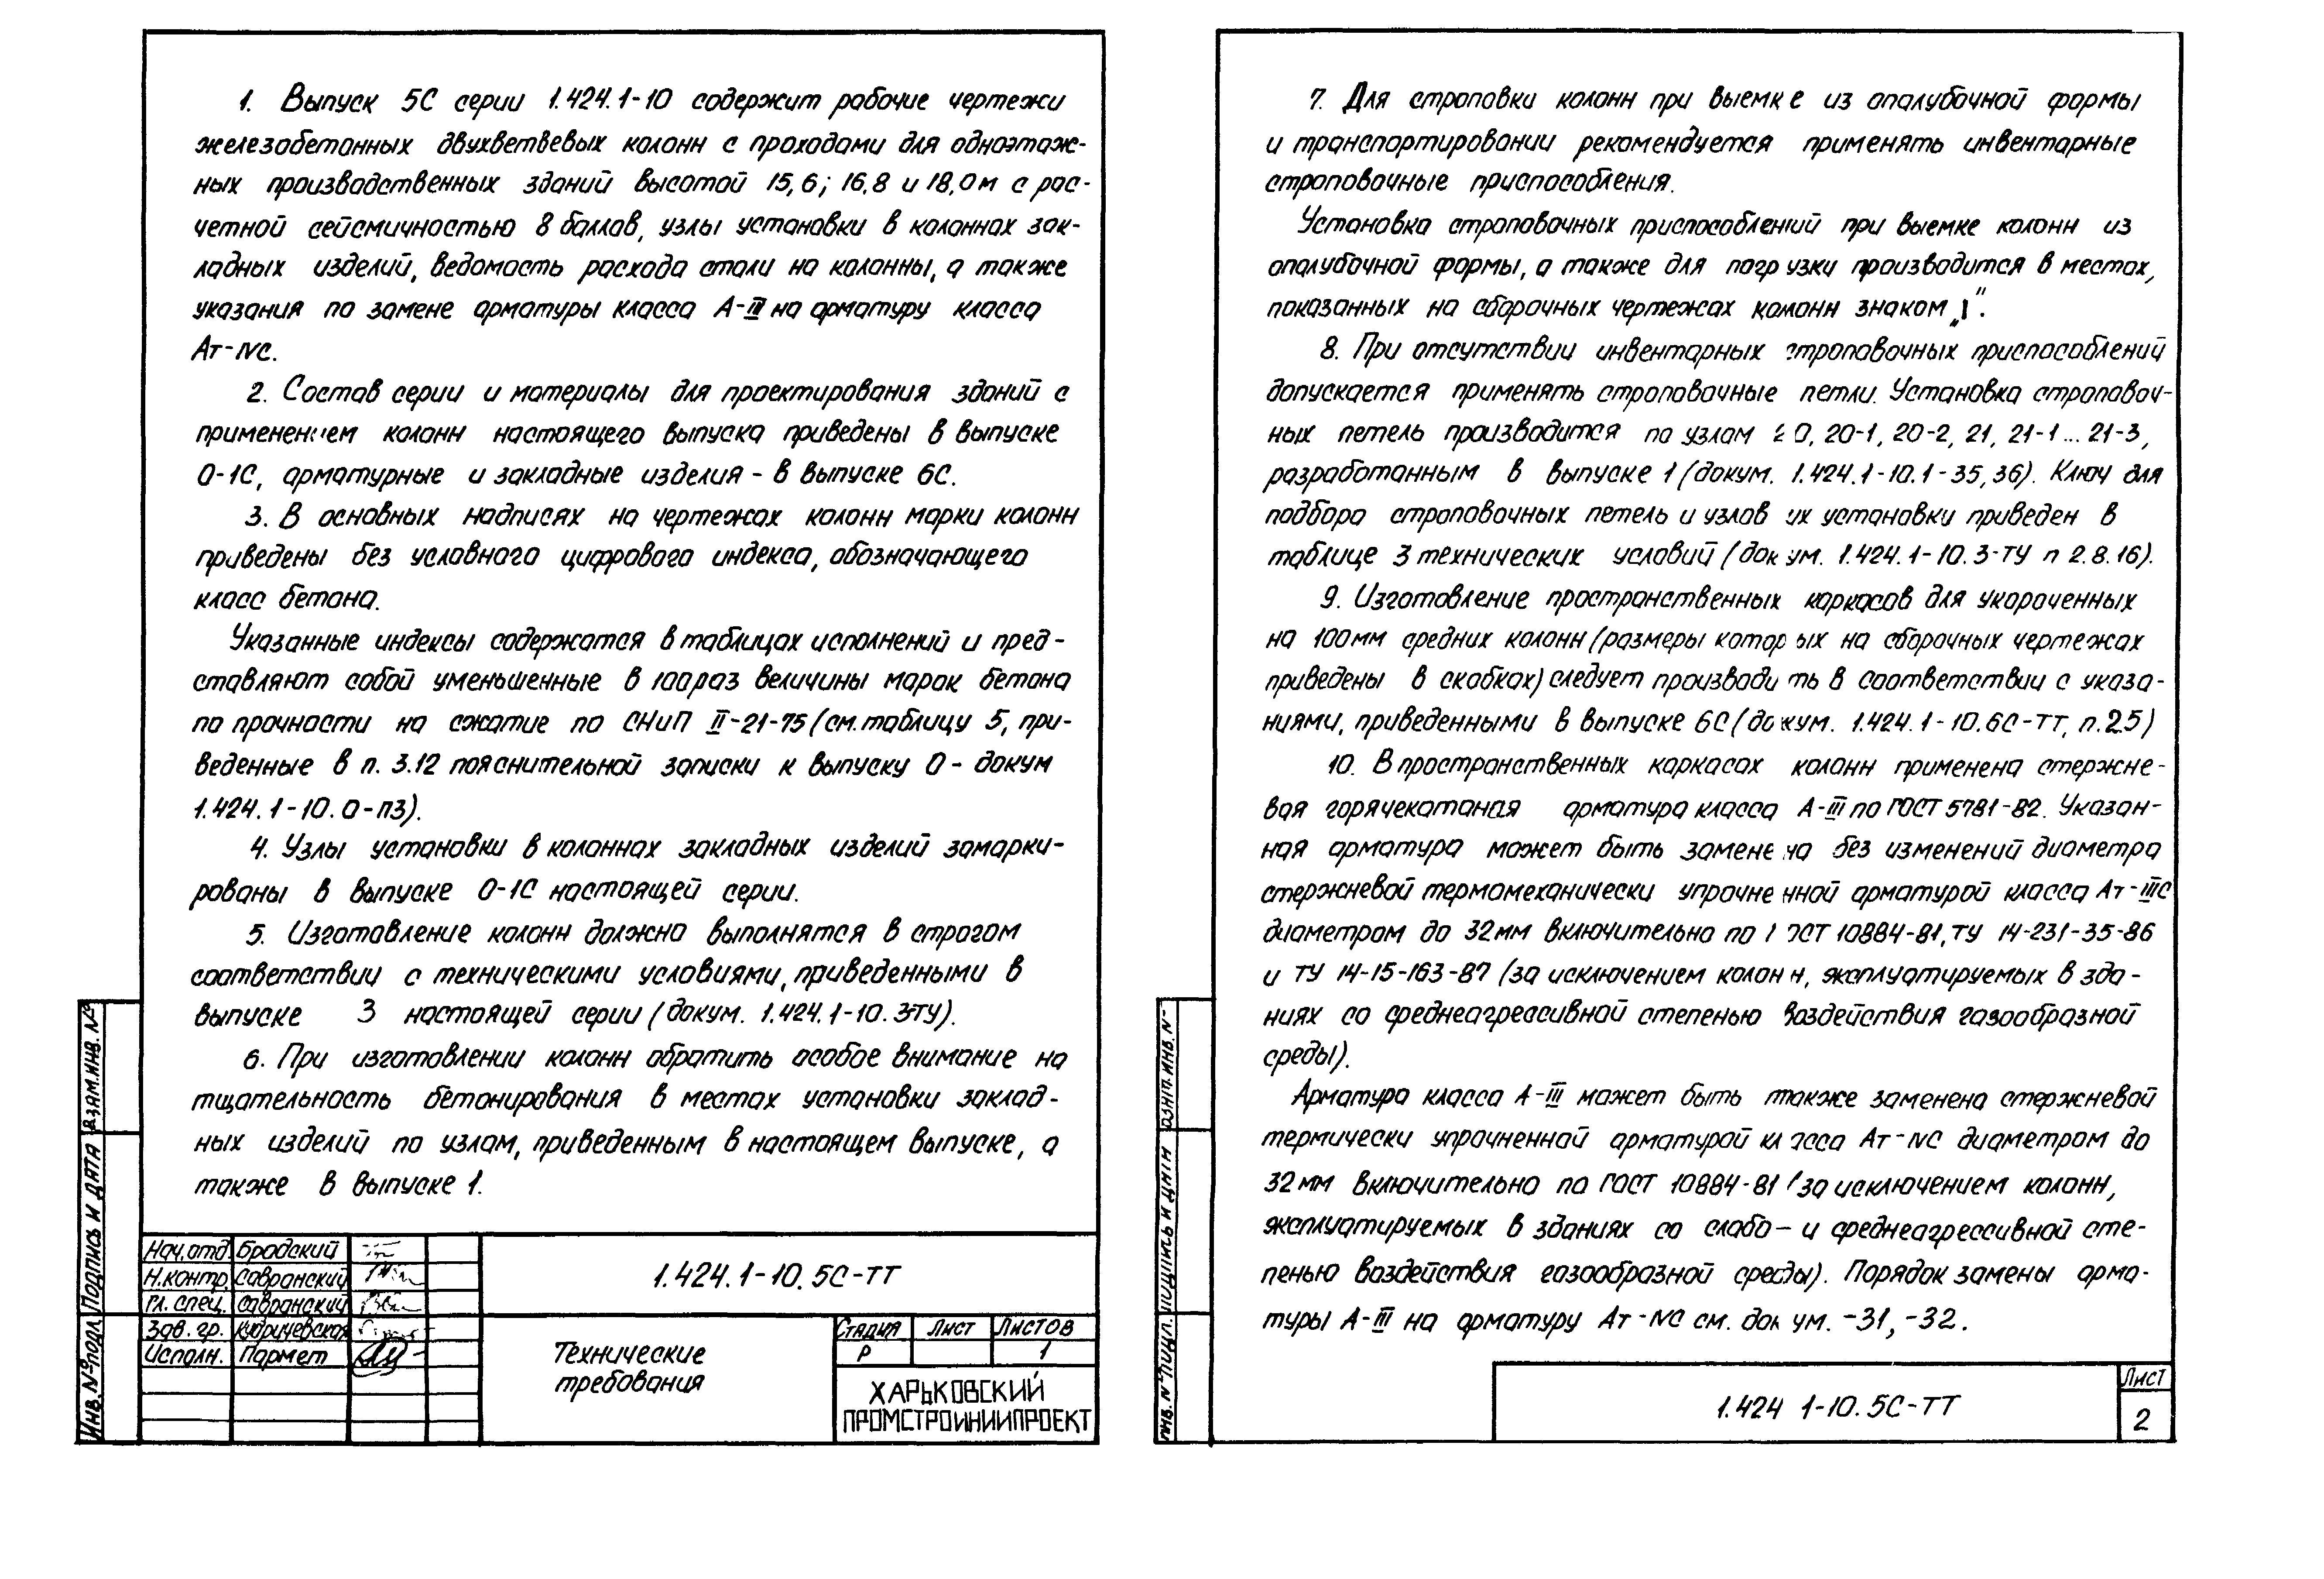 1. Выпуск 5С серии 1.424.1-10 содержит рабочие чертежи
железобетонных двухветвевых колонн с проходами для одноэтаж-
ных производственных зданий высотой 15,6; 16,8 и 18,0м с рас-
четной сейсмичностью 8 баллов, узлы установки в колоннах зак-
ладных изделий, ведомость расхода стали на колонны, а также
указания по замене арматуры класса А-III на арматуру класса
Ат-IVС.
2. Состав серии и материалы для проектирования зданий с
применением колонн настоящего выпуска приведены в выпуске
0-1С, арматурные и закладные изделия - в выпуске 6С.
3. В основных надписях на чертежах колонн марки колонн
приведены без условного цифрового индекса, обозначающего
класс бетона.
Указанные индексы содержатся в таблицах исполнений и пред-
ставляют собой уменьшенные в 100 раз величины марок бетона
по прочности на сжатие по СНиП II-21-75 (см. таблицу 5, при-
веденные в п. 3.12 пояснительной записки к выпуску 0 - докум
1.424.1-10.0-ПЗ).
4. Узлы установки в колоннах закладных изделий замарки-
рованы в выпуске 0-1С настоящей серии.
5. Изготовление колонн должно выполнятся в строгом
соответствии с техническими условиями, приведенными в
выпуске 3 настоящей серии (докум. 1.424.1-10.3-ТУ).
6. При изготовлении колонн обратить особое внимание на
тщательность бетонирования в местах установки заклад-
ных изделий по узлам, приведенным в настоящем выпуске, а
также в выпуске 1.
Взам.инв.№
Подпись и дата
Инв.№подл.
Нач.отд. Бродский
Н.контр. Савранский
Гл. спец. Савранский
Зав. гр. Кудричевская
Исполн. Пармет
1.424.1-10.5С-ТТ
Технические
требования
Стадия Лист Листов
Р 1
ХАРЬКОВСКИЙ
ПРОМСТРОЙНИИПРОЕКТ
7. Для строповки колонн при выемке из опалубочной формы
и транспортировании рекомендуется применять инвентарные
строповочные приспособления.
Установка строповочных приспособлений при выемке колонн из
опалубочной формы, а также для погрузки производится в местах,
показанных на сборочных чертежах колонн знаком „ ”.
8. При отсутствии инвентарных строповочных приспособлений
допускается применять строповочные петли. Установка строповоч-
ных петель производится по узлам 20, 20-1, 20-2, 21, 21-1...21-3,
разработанным в выпуске 1 (докум. 1.424.1-10.1-35,36). Ключ для
подбора строповочных петель и узлов их установки приведен в
таблице 3 технических условий (докум. 1.424.1-10.3-ТУ п 2.8.16).
9. Изготовление пространственных каркасов для укороченных
на 100мм средних колонн (размеры которых на сборочных чертежах
приведены в скобках) следует производить в соответствии с указа-
ниями, приведенными в выпуске 6С (докум. 1.424.1-10.6С-ТТ, п.2.5)
10. В пространственных каркасах колонн применена стержне-
вая горячекатаная арматура класса А-III по ГОСТ 5781-82. Указан-
ная арматура может быть заменена без изменений диаметра
стержневой термомеханически упрочненной арматурой класса Ат-IIIС
диаметром до 32мм включительно по ГОСТ 10884-81, ТУ 14-231-35-86
и ТУ 14-15-163-87 (за исключением колонн, эксплуатируемых в зда-
ниях со среднеагрессивной степенью воздействия газообразной
среды).
Арматура класса А-III может быть также заменена стержневой
термически упрочненной арматурой класса Ат-IVС диаметром до
32мм включительно по ГОСТ 10884-81 (за исключением колонн,
эксплуатируемых в зданиях со слабо- и среднеагрессивной сте-
пенью воздействия газообразной среды). Порядок замены арма-
туры А-III на арматуру Ат-IVС см. докум. -31, -32.
1.424 1-10.5С-ТТ
Лист
2